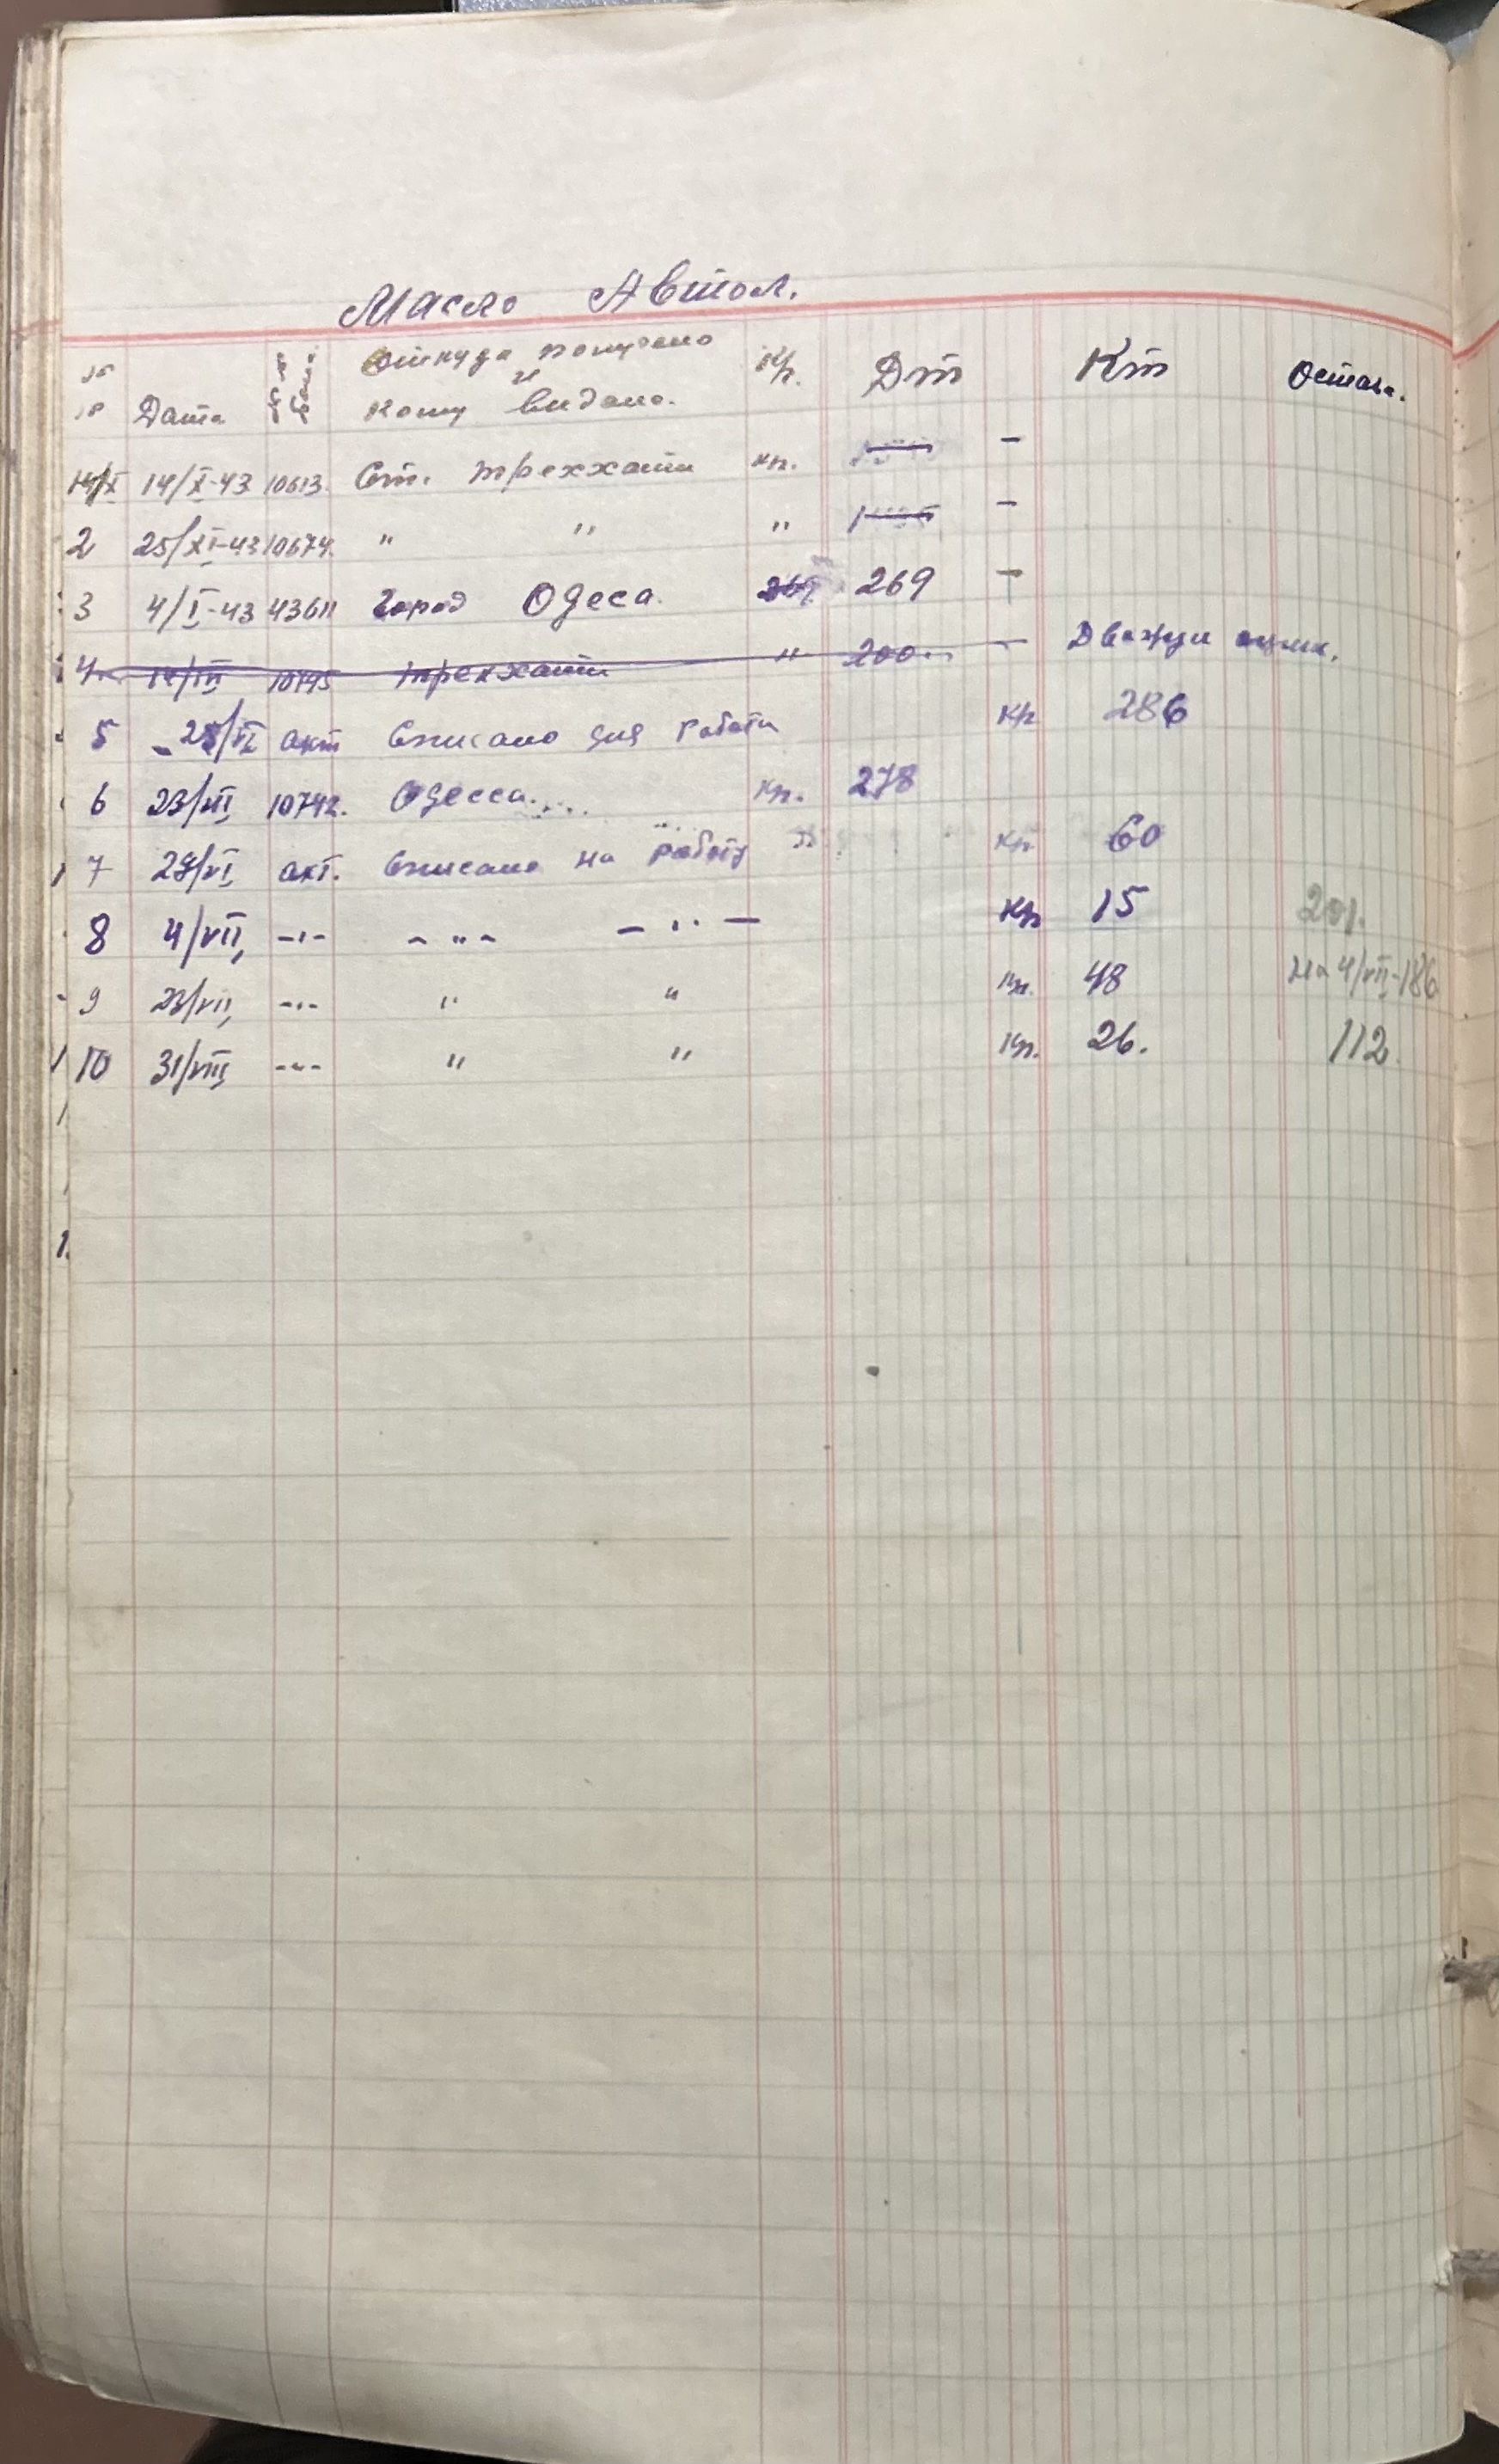 Масло Автол.
№ № Дата Откуда получено и кому видано. Кр. Дт Кт Остат.
14/X 14/X-43 10613. Ст. Треххати кр. —
2 25/XI-43 10674. " " " —
3 4/I-43 43611 Город Одеса. 269 269 —
4. 10745 Треххати " 200 — Дважди
5 25/VI акт Списано для работи кр 286
6 23/VI 10742. Одесса.... кр. 278
7 29/VI акт. Списано на работу кр 60
8 4/VII, -"- -"- -"- кр 15 201.
9 23/VII, -"- " " кр. 48 на 4/VII-186
10 31/VIII -"- " " кр. 26. 112.